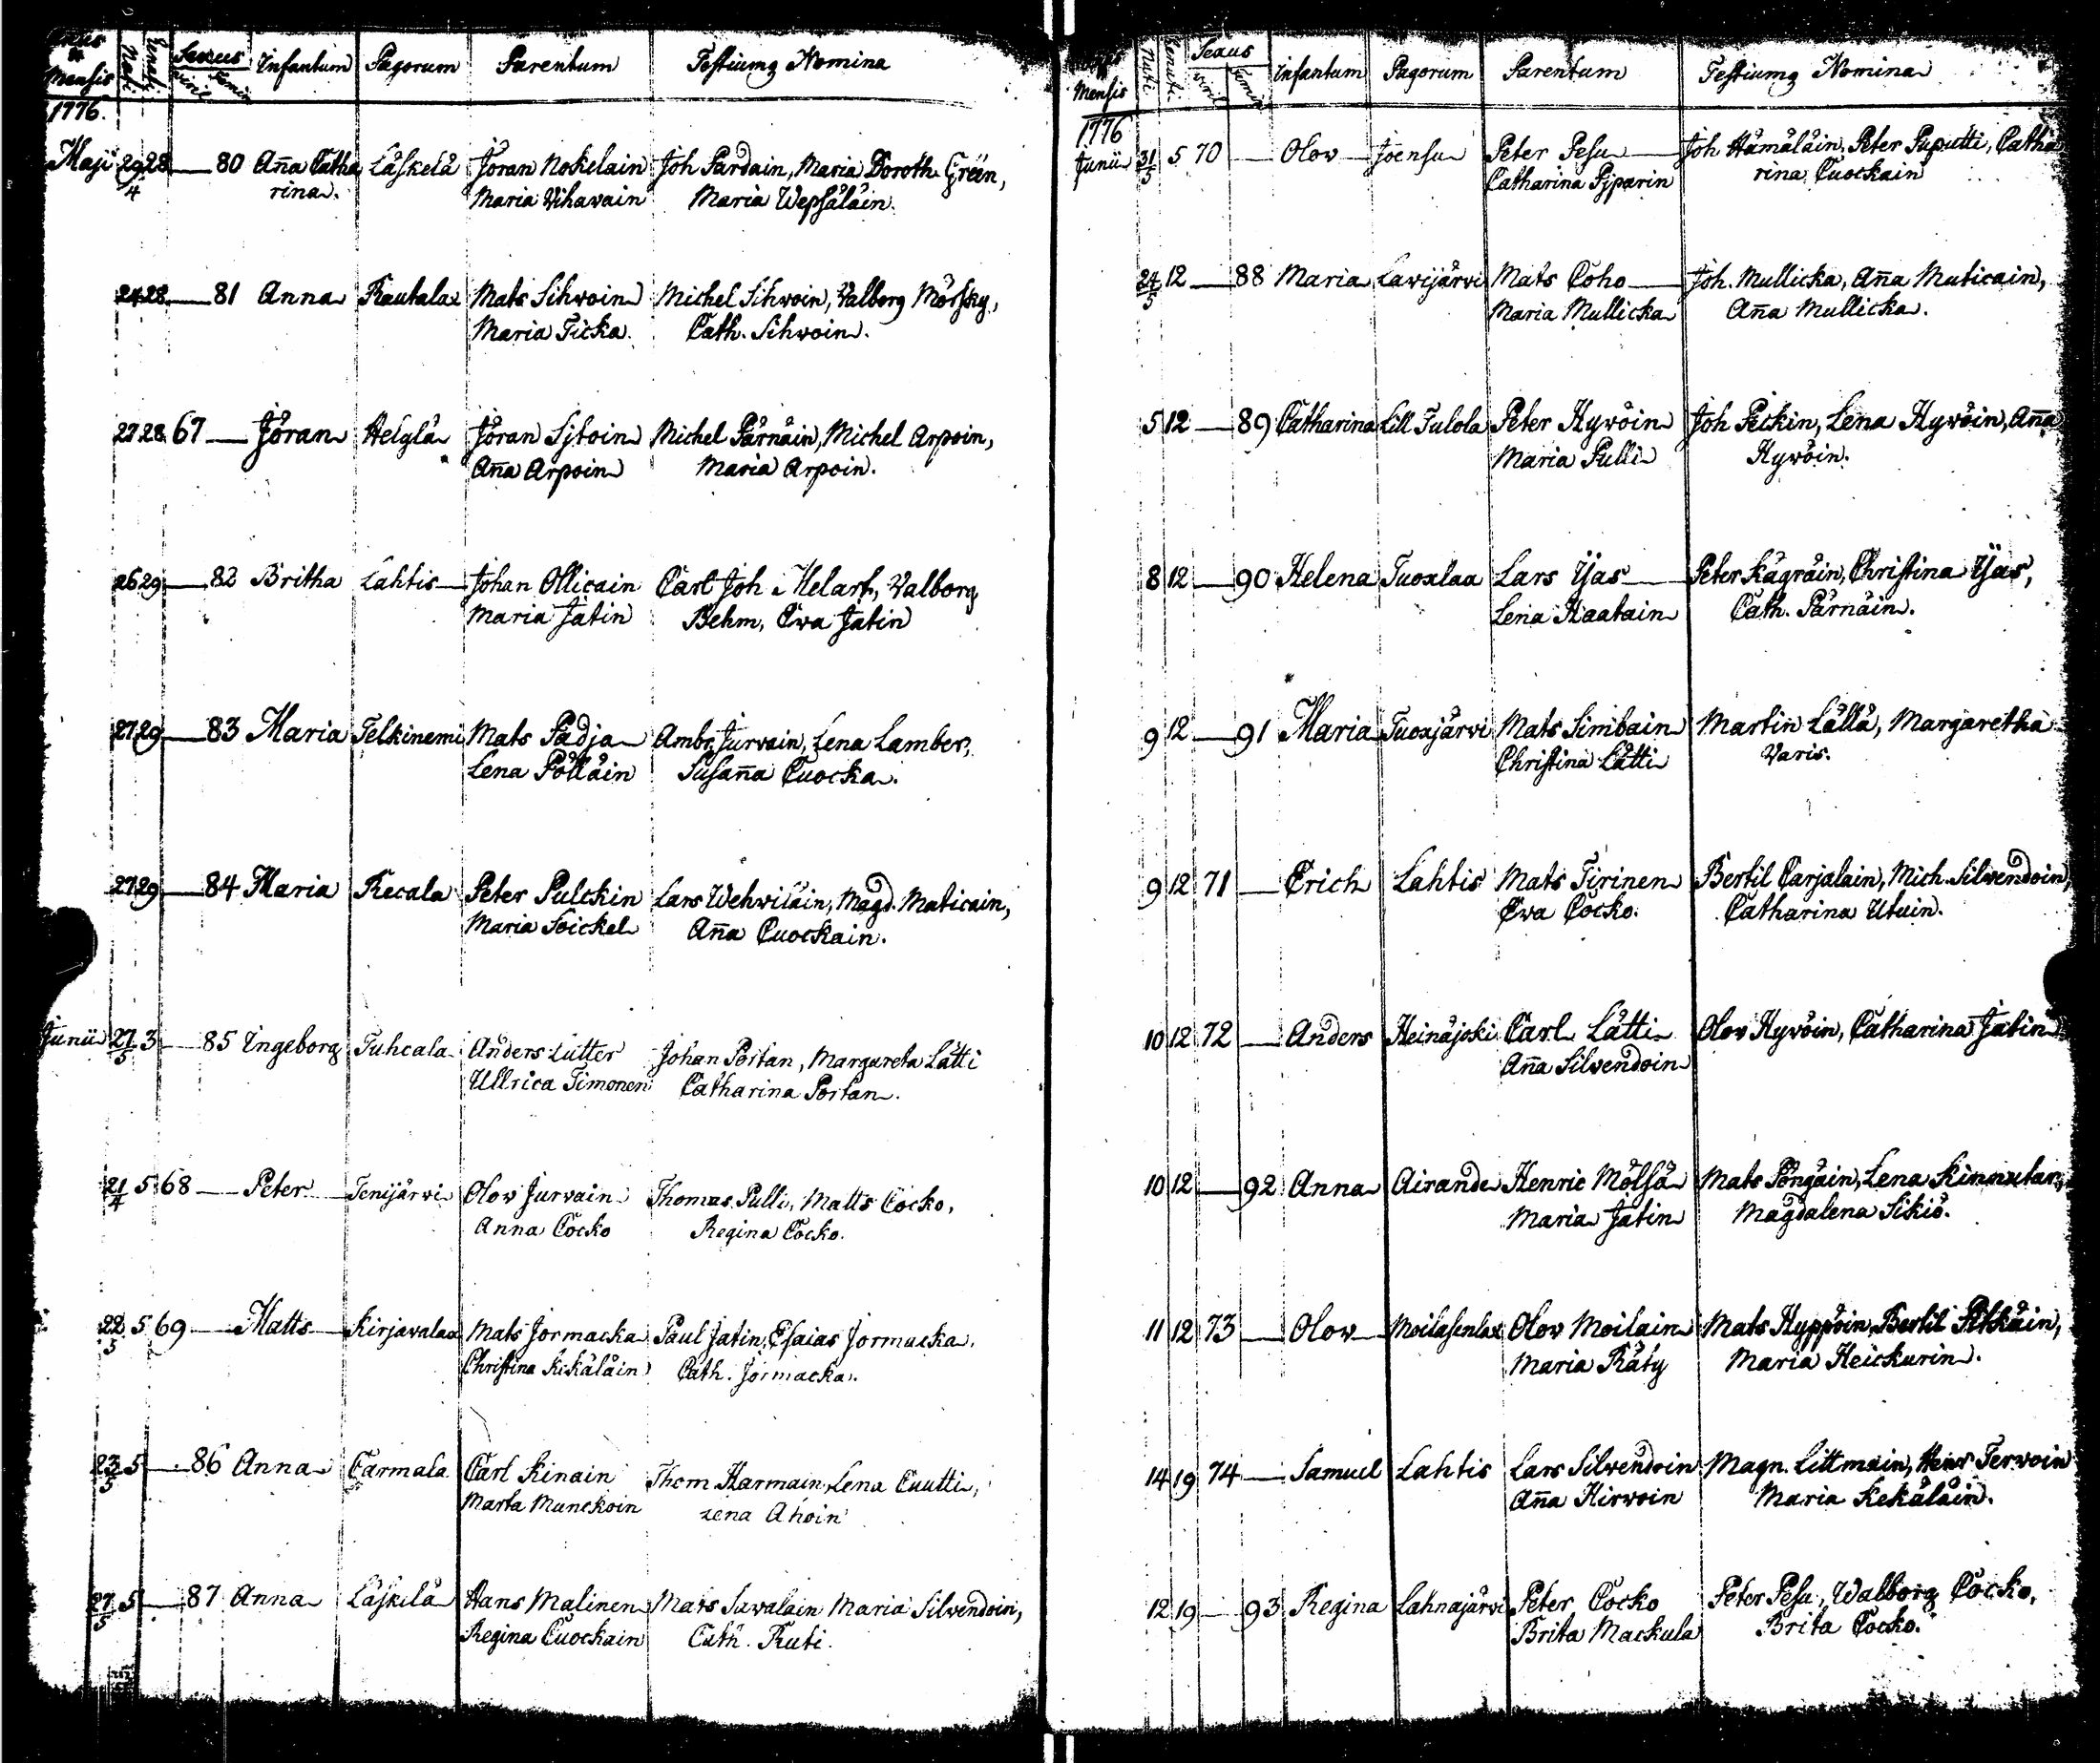 Mensis Nati Renati Sexus Viril Femin Infantum Pagorum Parentum Testiumq Nomina
1776.
Maji 29/4 28 — 80 Aña Catha Läskelä Jöran Nokelain Joh Pardain, Maria Doroth. Green,
rina. Maria Vihavain Maria Wepsäläin.
24 28 — 81 Anna Rautala Mats Sihvoin Michel Sihvoin, Valborg Mörsky,
Maria Ticka. Cath. Sihvoin.
27 28 67 — Jöran Helylä Jöran Sjtoin Michel Pärnäin, Michel Arpoin,
Aña Arpoin Maria Arpoin.
26 29 — 82 Britha Lahtis Johan Ollicain Carl Joh Helart, Valborg
Maria Jatin Behm, Ewa Jatin
27 29 — 83 Maria Telkinemi Mats Padja Ambr. Jurvain, Lena Lamber,
Lena Pölläin Susaña Cuocka.
27 29 — 84 Maria Recala Peter Pulckin Lars Wehviläin, Magd. Maticain,
Maria Soickel Aña Cuockain.
Junii 27/5 3 — 85 Ingeborg Tuhcala Anders Lutter Johan Portan, Margareta Lätti
Ullrica Timonen Catharina Portan.
21/4 5 68 — Peter Tenijärvi Olov Jurvain Thomas Pulli, Matts Cocko,
Anna Cocko Regina Cocko.
22/5 5 69 — Matts Kirjavalax Mats Jormacka Paul Jatin, Esaias Jormacka,
Christina Kikäläin Cath. Jormacka.
23/5 5 — 86 Anna Carmala Carl Kinain Thom Harmain, Lena Cuutti,
Marta Munckoin Lena Ahoin
27/5 5 — 87 Anna Läskelä Hans Malinen Mats Savalain Maria Silvendoin,
Regina Cuockain Cath. Ruti.
Mensis Nati Renati Sexus Viril Femin Infantum Pagorum Parentum Testiumq Nomina
1776
Junii 31/5 5 70 — Olov Joensu Peter Pesu Joh Hämäläin, Peter Puputti, Catha
Catharina Pyparin rina Cuockain
24/5 12 — 88 Maria Lavijärvi Mats Coho Joh. Mullicka, Aña Maticain,
Maria Mullicka Aña Mullicka.
5 12 — 89 Catharina Lill Tulola Peter Hyvöin Joh Peckin, Lena Hyvöin, Aña
Maria Pulli Hyvöin.
8 12 — 90 Helena Tuoxlax Lars Yjas Peter Kägräin, Christina Yjas,
Lena Haatain Cath. Pärnäin.
9 12 — 91 Maria Tuoxjärvi Mats Simbain Martin Lällä, Margaretha
Christina Lätti Varis.
9 12 71 — Erich Lahtis Mats Tirinen Bertil Carjalain, Mich. Silvendoin,
Ewa Cocko. Catharina Utuin.
10 12 72 — Anders Heinäjoki Carl Lätti Olov Hyvöin, Catharina Jatin
Aña Silvendoin
10 12 — 92 Anna Airande Henric Mölsä Mats Pöngäin, Lena Kinnutar,
Maria Jatin Magdalena Sikiö.
11 12 73 — Olov Moilasenlax Olov Moilain Mats Hyppöin, Bertil Pitkäin,
Maria Räty Maria Heickurin.
14 19 74 — Samuel Lahtis Lars Silvendoin Magn. Littmain, Henr Tervoin
Aña Hirvoin Maria Kekäläin.
12 19 — 93 Regina Lahnajärvi Peter Cocko Peter Pesu, Walborg Cocko,
Brita Mackula Brita Cocko.